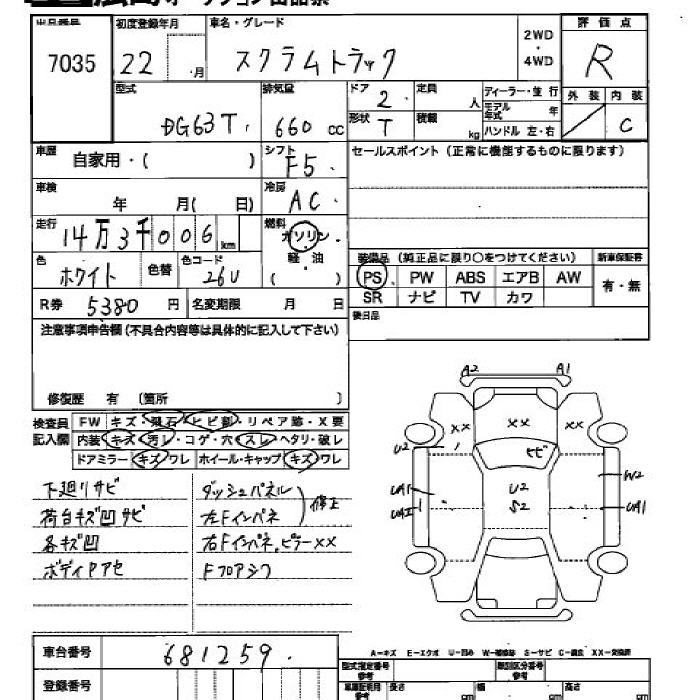 出品番号 初度登録年月 車名・グレード 2WD・4WD 評価点
7035 22 月 スクラムトラック R
型式 排気量 ドア 2 定員 人 ディーラー・並行 外装 内装
DG63T 660 cc 形状 T 積載 kg モデル年式 年 ハンドル 左・右 C
車歴 自家用・( ) シフト F5 セールスポイント(正常に機能するものに限ります)
車検 年 月( 日) 冷房 AC
走行 14万3千006km 燃料 ガソリン・軽・油 ( )
色 ホワイト 色替 色コード 26U
装備品(純正品に限り○をつけてください) 新車保証書
PS PW ABS エアB AW 有・無
SR ナビ TV カワ
R券 5380 円 名変期限 月 日
後日品
注意事項申告欄(不具合内容等は具体的に記入して下さい)
修復歴 有 〔箇所 〕
検査員記入欄 FW キズ・飛石・ヒビ割・リペア跡・X要
内装 キズ・汚レ・コゲ・穴・スレ・ヘタリ・破レ
ドアミラー キズ・ワレ ホイール・キャップ キズ・ワレ
下廻リサビ
荷台キズ凹サビ
各キズ凹
ボディPアセ
ダッシュパネル
左Fインパネ
修正
右Fインパネ、ピラーXX
Fフロアシワ
A2 A1
XX XX XX
U2 ヒビ
U2
S2
W2
UA1 UA1
UA2
A-キズ E-エクボ U-凹み W-補修跡 S-サビ C-腐食 XX-交換済
車台番号 681259
登録番号
型式指定番号 参考 類別区分番号 参考
長さ cm 幅 cm 高さ cm